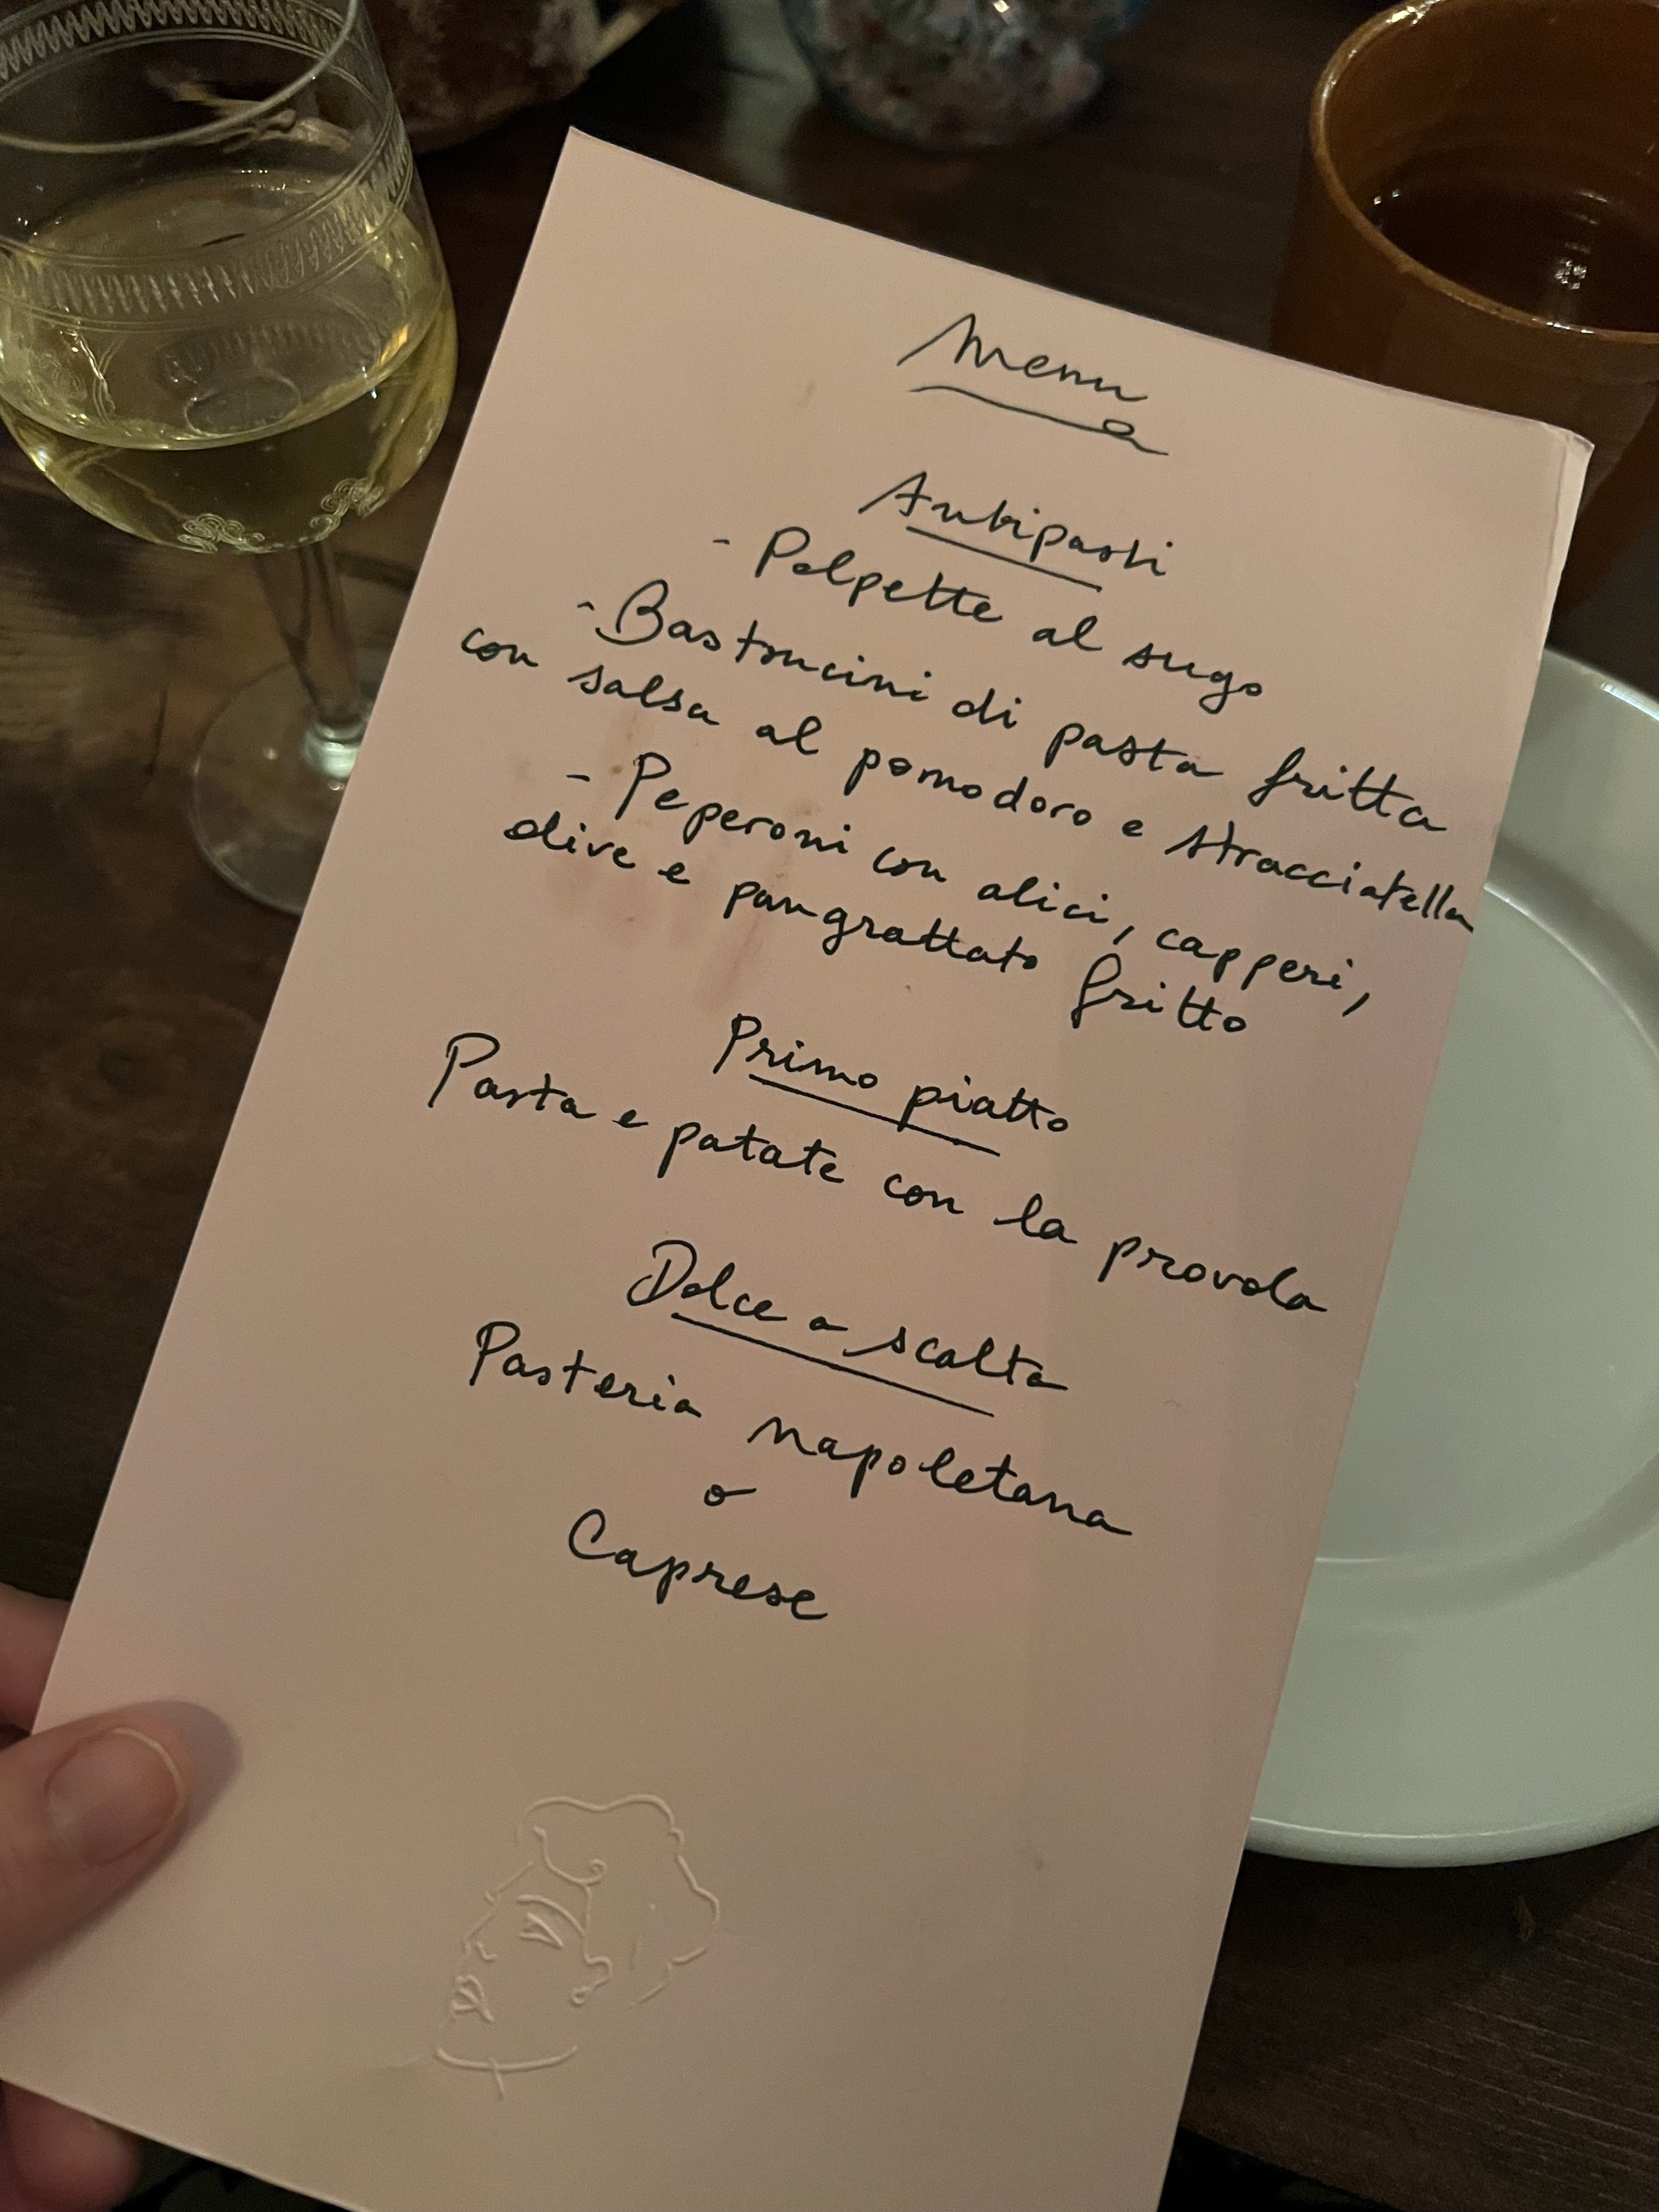 Menu
Antipasti
- Polpette al sugo
- Bastoncini di pasta fritta
con salsa al pomodoro e stracciatella
- Peperoni con alici, capperi,
olive e pangrattato fritto
Primo piatto
Pasta e patate con la provola
Dolce a scelta
Pasteria napoletana
o
Caprese